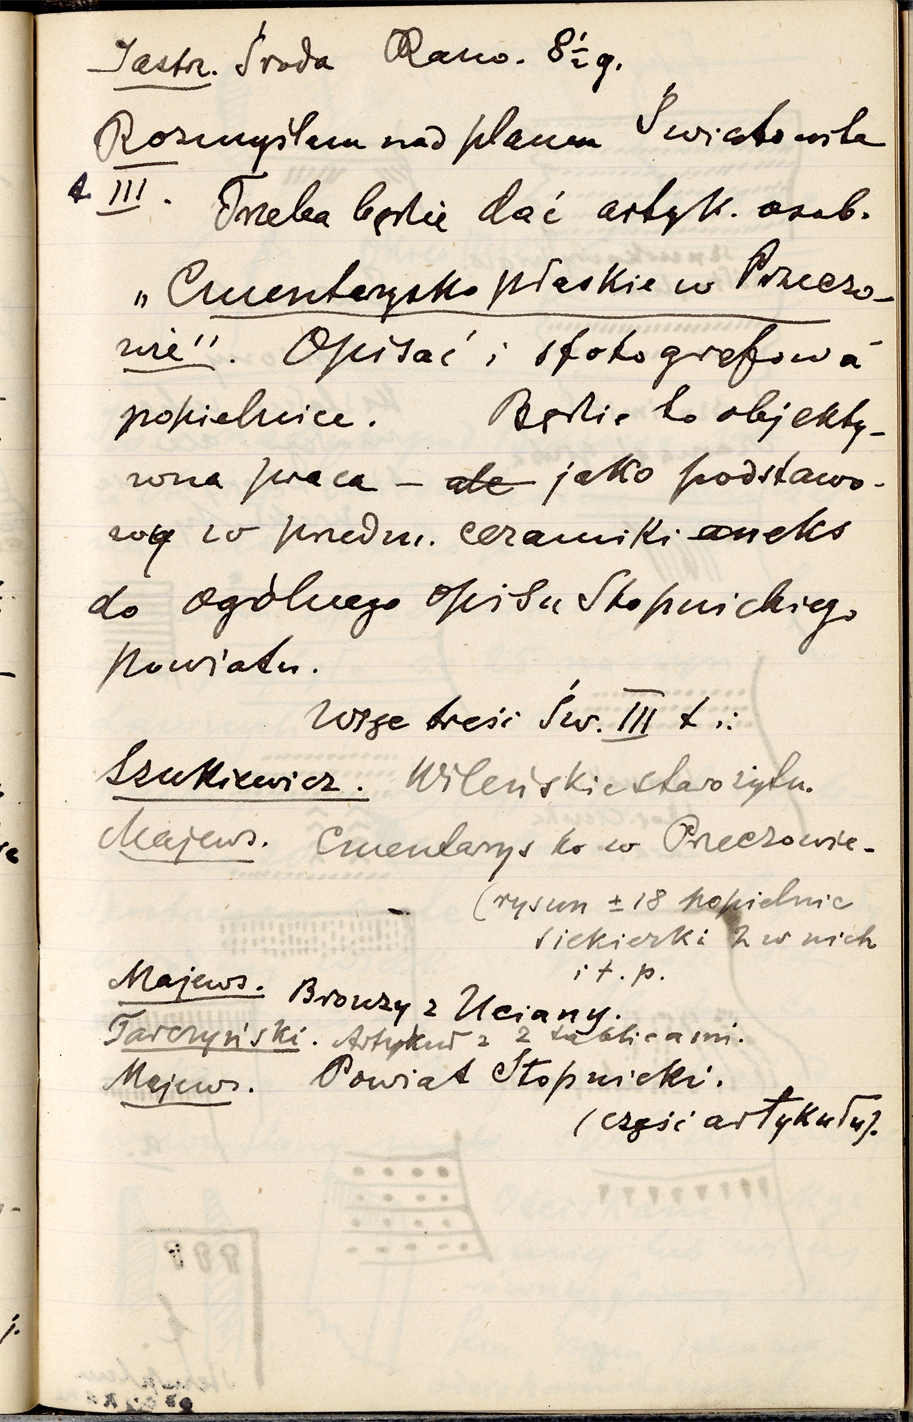 Jastrz. Środa Rano. 8½ g.
Rozmyślam nad planem Światowita
t III. Trzeba będzie dać artyk. osob.
„Cmentarzysko płaskie w Przeczo-
wie". Opisać i sfotografować
popielnice. Będzie to objekty-
wna praca – ale jako podstawo-
wy w przedm. ceramiki aneks
do ogólnego opisu Stopnickiego
powiatu.
Więc treść Św. III t.:
Szukiewicz. Wileńskie starożytn.
Majews. Cmentarzysko w Przeczowie –
(rysun ± 18 popielnic
siekierki 2 w nich
i t. p.
Majews. Bronzy z Uciany.
Tarczyński. Artykuł z 2 tablicami.
Majews. Powiat Stopnicki.
(część artykułu).